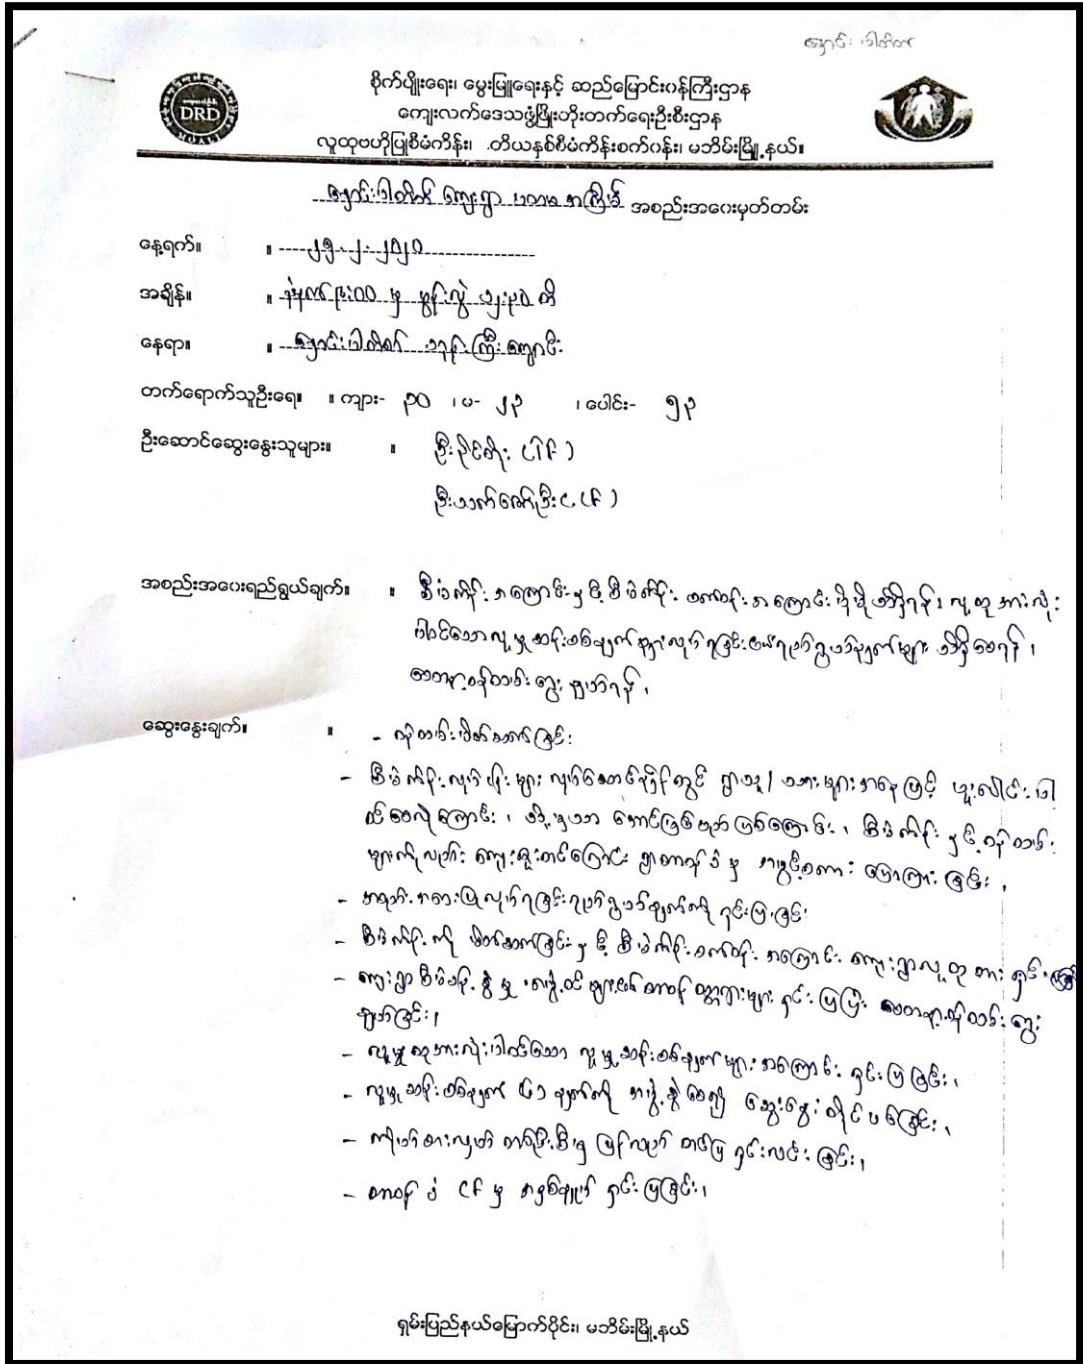 နောင်းပါတိတ်
DRD
စိုက်ပျိုးရေး၊ မွေးမြူရေးနှင့် ဆည်မြောင်းဝန်ကြီးဌာန
ကျေးလက်ဒေသဖွံ့ဖြိုးတိုးတက်ရေးဦးစီးဌာန
လူထုဗဟိုပြုစီမံကိန်း၊ .တိယနှစ်စီမံကိန်းစက်ဝန်း၊ မဘိမ်းမြို့နယ်။
နောင်းပါတိတ် ကျေးရွာ ပထမ အကြိမ် အစည်းအဝေးမှတ်တမ်း
နေ့ရက်။ ။ ၂၅.၂.၂၀၂၀
အချိန်။ ။ နံနက် ၉:၀၀ မှ မွန်းလွဲ ၁၂:၃၀ ထိ
နေရာ။ ။ နောင်းပါတိတ် ဘုန်းကြီးကျောင်း
တက်ရောက်သူဦးရေ။ ။ ကျား- ၃၀ ၊ မ- ၂၃ ၊ ပေါင်း- ၅၃
ဦးဆောင်ဆွေးနွေးသူများ။ ။ ဦး (TF)
ဦးသက်ဇော်ဦး (CF)
အစည်းအဝေးရည်ရွယ်ချက်။ ။ စီမံကိန်းအကြောင်းနှင့် စီမံကိန်း စက်ဝန်းအကြောင်း ပိုမိုသိရှိရန်၊ လူထုအားလုံး
ပါဝင်သောလူမှုဆန်းစစ်ချက်များလုပ်ရခြင်း ရည်ရွယ်ချက်များ သိရှိစေရန်၊
စေတနာ့ဝန်ထမ်း ရွေးချယ်ရန်၊
ဆွေးနွေးချက်။ ။ - ဝန်ထမ်းမိတ်ဆက်ခြင်း
- စီမံကိန်းလုပ်ငန်းများ လုပ်ဆောင်ချိန်တွင် ရွာသူ/သားများအနေဖြင့် ပူးပေါင်းပါ
ဝင်စေလိုကြောင်း၊ သို့မှသာ အောင်မြင်မည်ဖြစ်ကြောင်း၊ စီမံကိန်းနှင့် ဝန်ထမ်း
များကိုလည်း ကျေးဇူးတင်ကြောင်း ရွာတာဝန်ခံမှ အဖွင့်စကား ပြောကြားခြင်း၊
- အစည်းအဝေးပြုလုပ်ရခြင်းရည်ရွယ်ချက်ကို ရှင်းပြခြင်း
- စီမံကိန်းကို မိတ်ဆက်ခြင်းနှင့် စီမံကိန်းစက်ဝန်း အကြောင်း ကျေးရွာလူထုအား ရှင်းပြ
- ကျေးရွာစီမံခန့်ခွဲမှု အဖွဲ့ဝင်များ၏ တာဝန် ဝတ္တရားများ ရှင်းပြပြီး စေတနာ့ဝန်ထမ်း ရွေး
ချယ်ခြင်း၊
- လူထုအားလုံးပါဝင်သော လူမှုဆန်းစစ်ချက်များ အကြောင်း ရှင်းပြခြင်း၊
- လူမှုဆန်းစစ်ချက် ချက်ကို အဖွဲ့ခွဲစေ၍ ဆွေးနွေးတိုင်ပင်ခြင်း၊
- ကိုယ်စားလှယ် တစ်ဦးစီမှ ပြန်လည် တင်ပြ ရှင်းလင်းခြင်း၊
- တာဝန်ခံ CF မှ အနှစ်ချုပ် ရှင်းပြခြင်း၊
ရှမ်းပြည်နယ်မြောက်ပိုင်း၊ မဘိမ်းမြို့နယ်